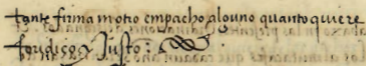 tante firma ni otro empacho alguno quanto quiere
Jurídico y Justo: